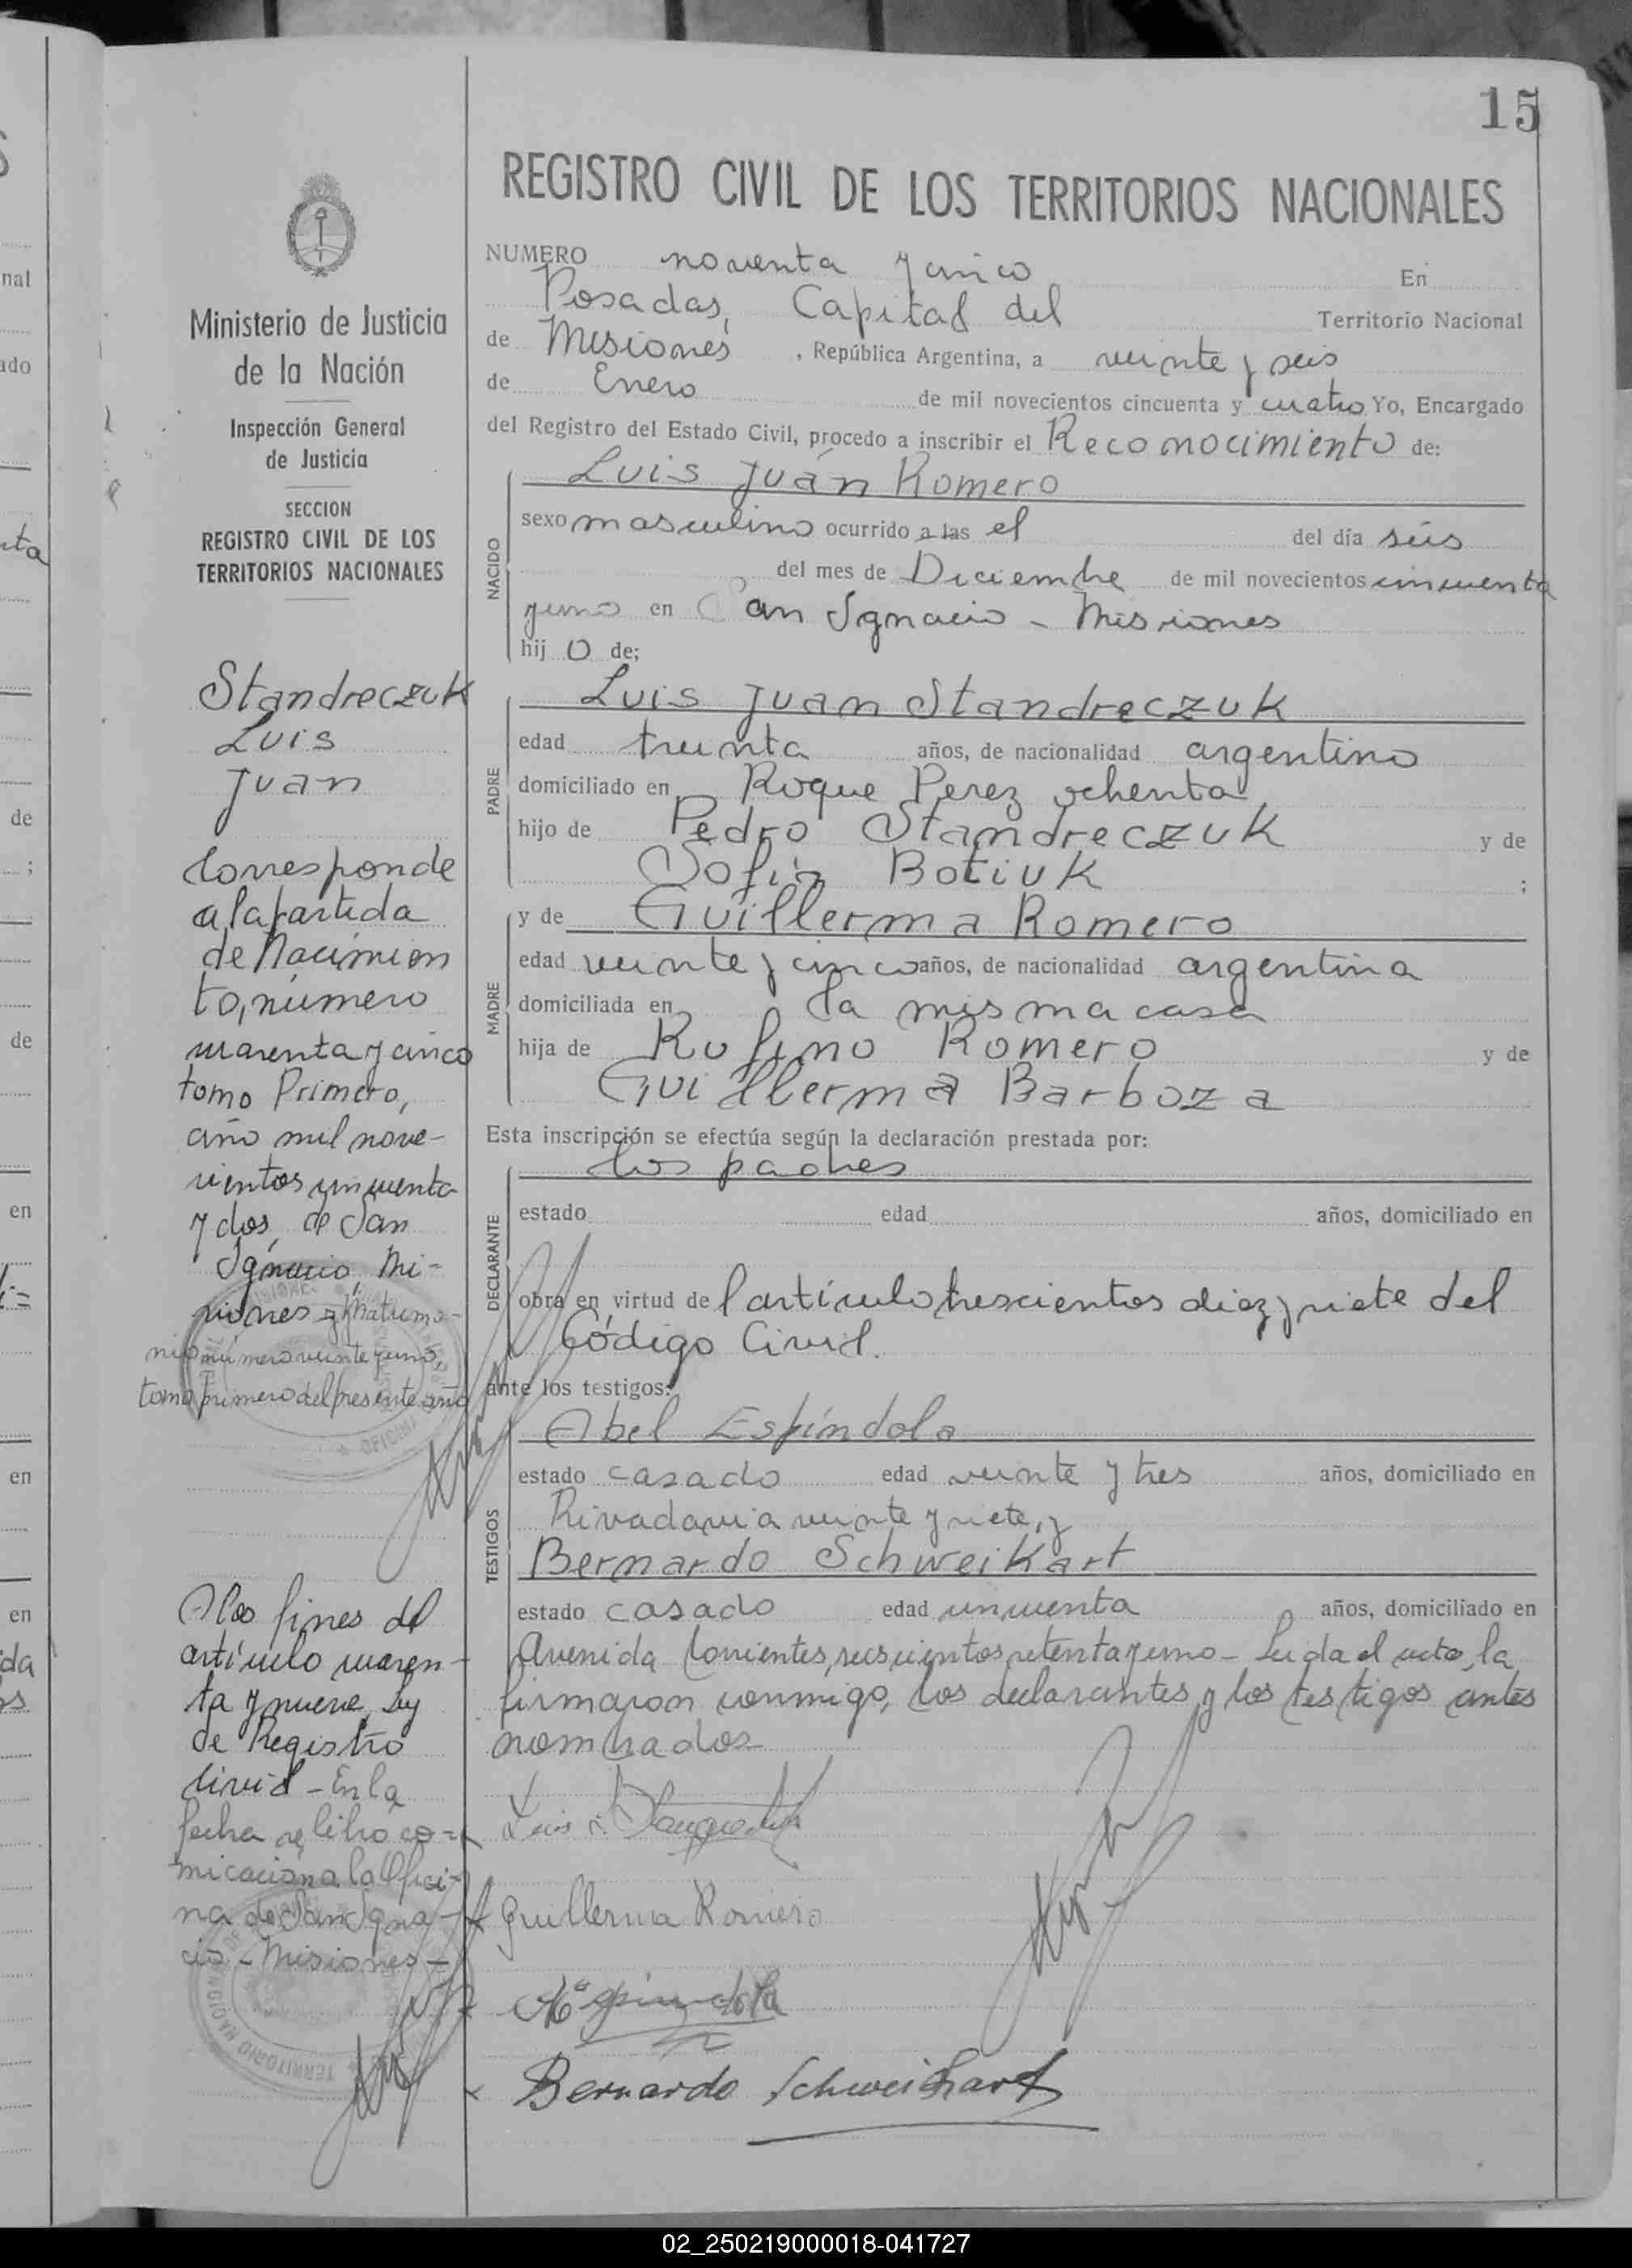 15
REGISTRO CIVIL DE LOS TERRITORIOS NACIONALES
NUMERO noventa y cinco En
Posadas, Capital del Territorio Nacional
de Misiones, República Argentina, a veinte y seis
de Enero de mil novecientos cincuenta y cuatro Yo, Encargado
del Registro del Estado Civil, procedo a inscribir el Reconocimiento de:
Luis Juán Romero
NACIDO
sexo masculino ocurrido a las el del día seis
del mes de Diciembre de mil novecientos cincuenta
y uno en San Ignacio - Misiones
hij o de;
PADRE
Luis Juan Standreczuk
edad treinta años, de nacionalidad argentino
domiciliado en Roque Perez ochenta
hijo de Pedro Standreczuk y de
Sofia Botiuk ;
MADRE
y de Guillerma Romero
edad veinte y cinco años, de nacionalidad argentina
domiciliada en la misma casa
hija de Rufino Romero y de
Guillerma Barboza
Esta inscripción se efectúa según la declaración prestada por:
DECLARANTE
los padres
estado edad años, domiciliado en
obra en virtud de l artículo trescientos diez y siete del
Código Civil.
ante los testigos:
TESTIGOS
Abel Espíndola
estado casado edad veinte y tres años, domiciliado en
Rivadavia veinte y siete, y
Bernardo Schweikart
estado casado edad cincuenta años, domiciliado en
Avenida Corrientes, seiscientos setenta y uno - Leida el acta, la
firmaron conmigo, los declarantes y los testigos antes
nombrados
Luis J.
Guillerma Romero
Espindola
Bernardo Schweikart
Ministerio de Justicia
de la Nación
Inspección General
de Justicia
SECCION
REGISTRO CIVIL DE LOS
TERRITORIOS NACIONALES
Standreczuk
Luis
Juan
Corresponde
a la partida
de Nacimien
to, número
cuarenta y cinco
tomo Primero,
año mil nove-
cientos cincuenta
y dos, de San
Ignacio, Mi-
siones y Matrimo-
nio número veinte y uno,
tomo primero del presente año
A los fines del
artículo cuaren-
ta y nueve, Ley
de Registro
Civil - En la
fecha se libró co-
micación a la Ofici-
na de San Igna-
cio - Misiones -
02_250219000018-041727